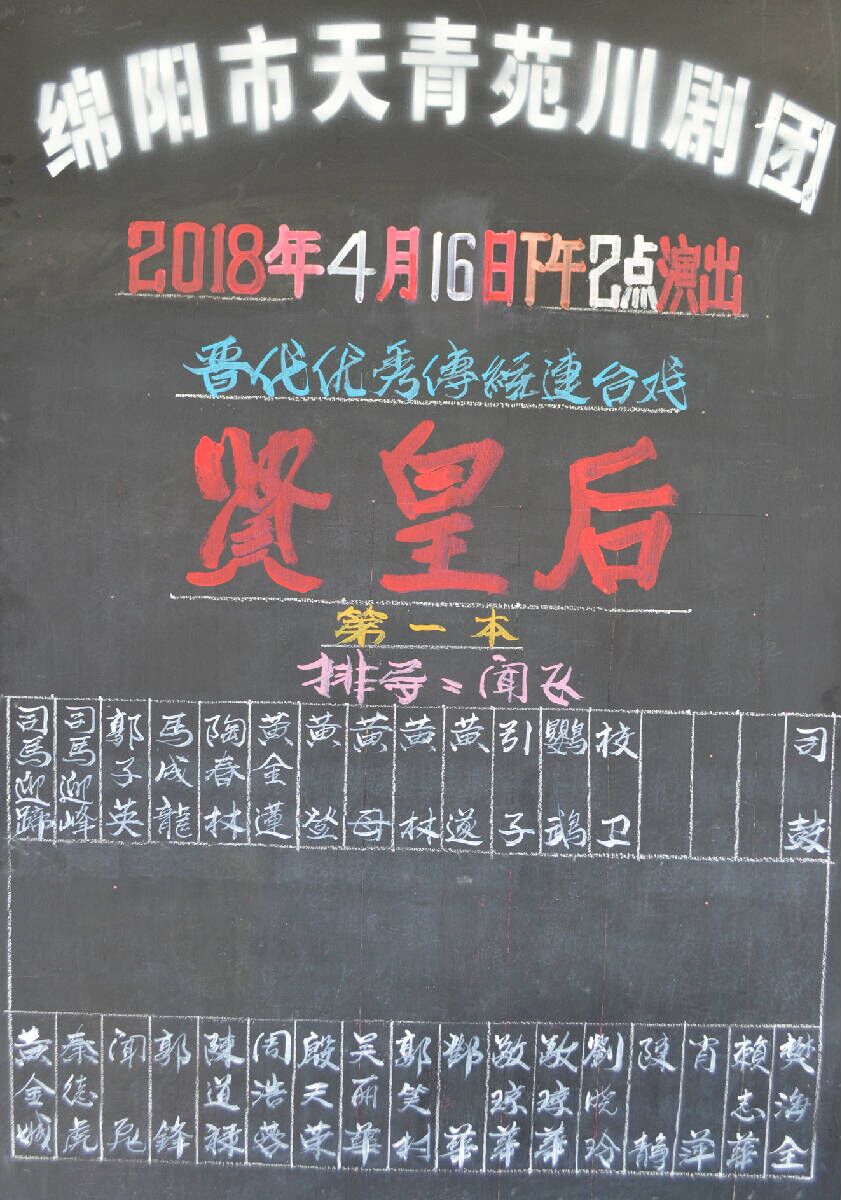 绵阳市天青苑川剧团
2018年4月16日下午2点演出
晋代优秀傳統連台戏
贤皇后
第一本
排导：闻飞
司馬迎蹄 司馬迎峰 郭子英 馬成龍 陶春林 黄金蓮 黄登 黄母 黄林 黄遂 引子 鹦鵡 校卫 司鼓
黄金城 秦德虎 闻飛 郭鋒 陳道禄 周浩蓉 殷天荣 吴丽華 郭笑利 鄧華 敬琼華 敬琼華 劉晓玲 陳静 肖萍 賴志華 樊海全